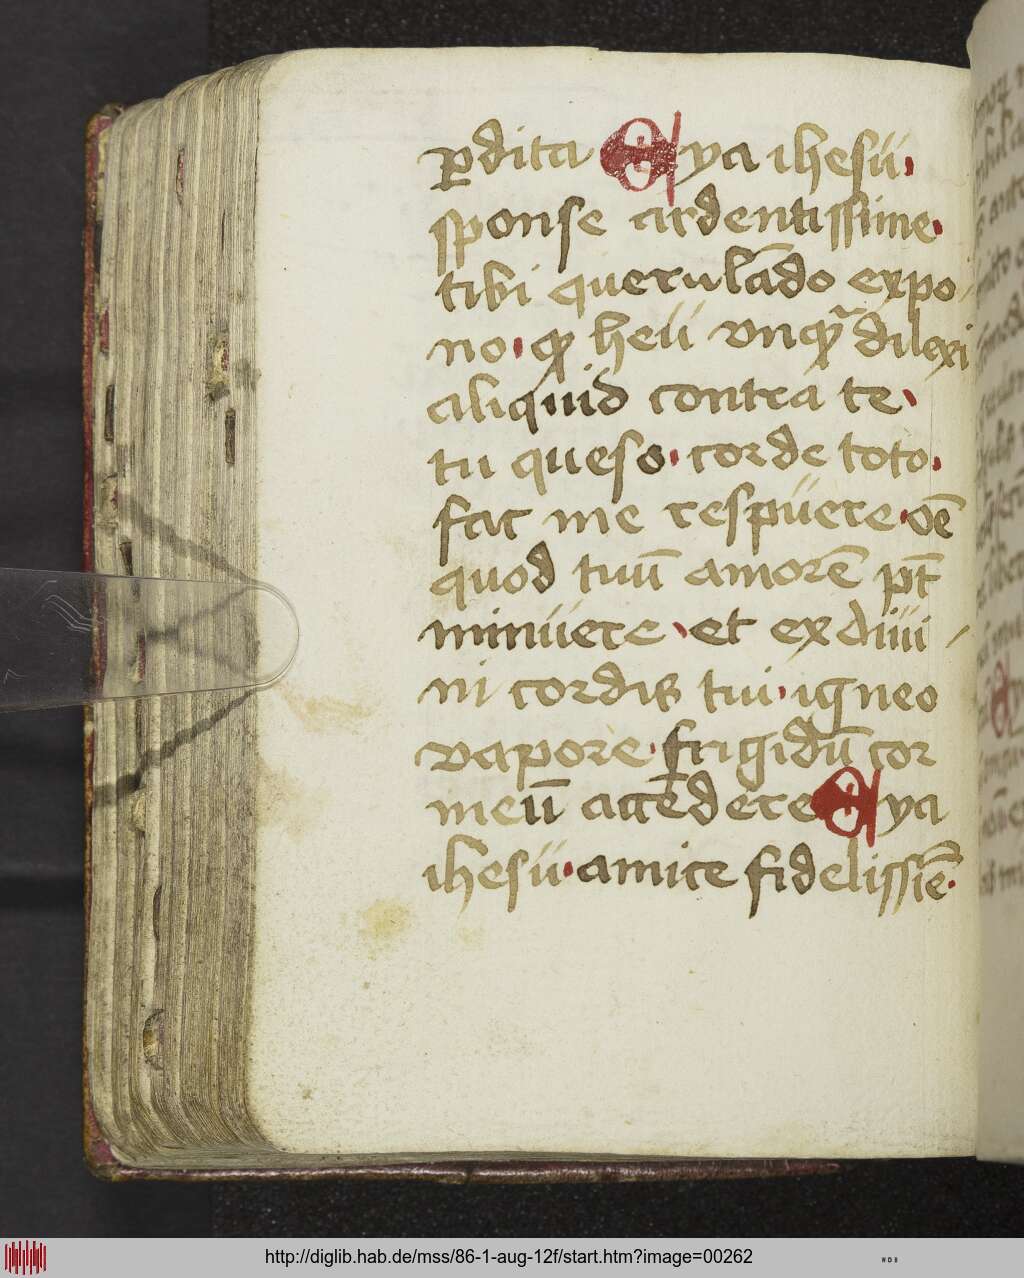 ꝑdita Eya ihesu
sponse ardentissime
tibi querulādo expo
no ꝙ heu vnqᷓ dilexi
aliquid contra te
tu queso corde toto
fac me respuere oē
quod tuū amorē pt̄
minuere et ex diui
ni cordis tui igneo
vapore frigidū cor
meū accēdere Eya
ihesu amice fidelissiē
http://diglib.hab.de/mss/86-1-aug-12f/start.htm?image=00262